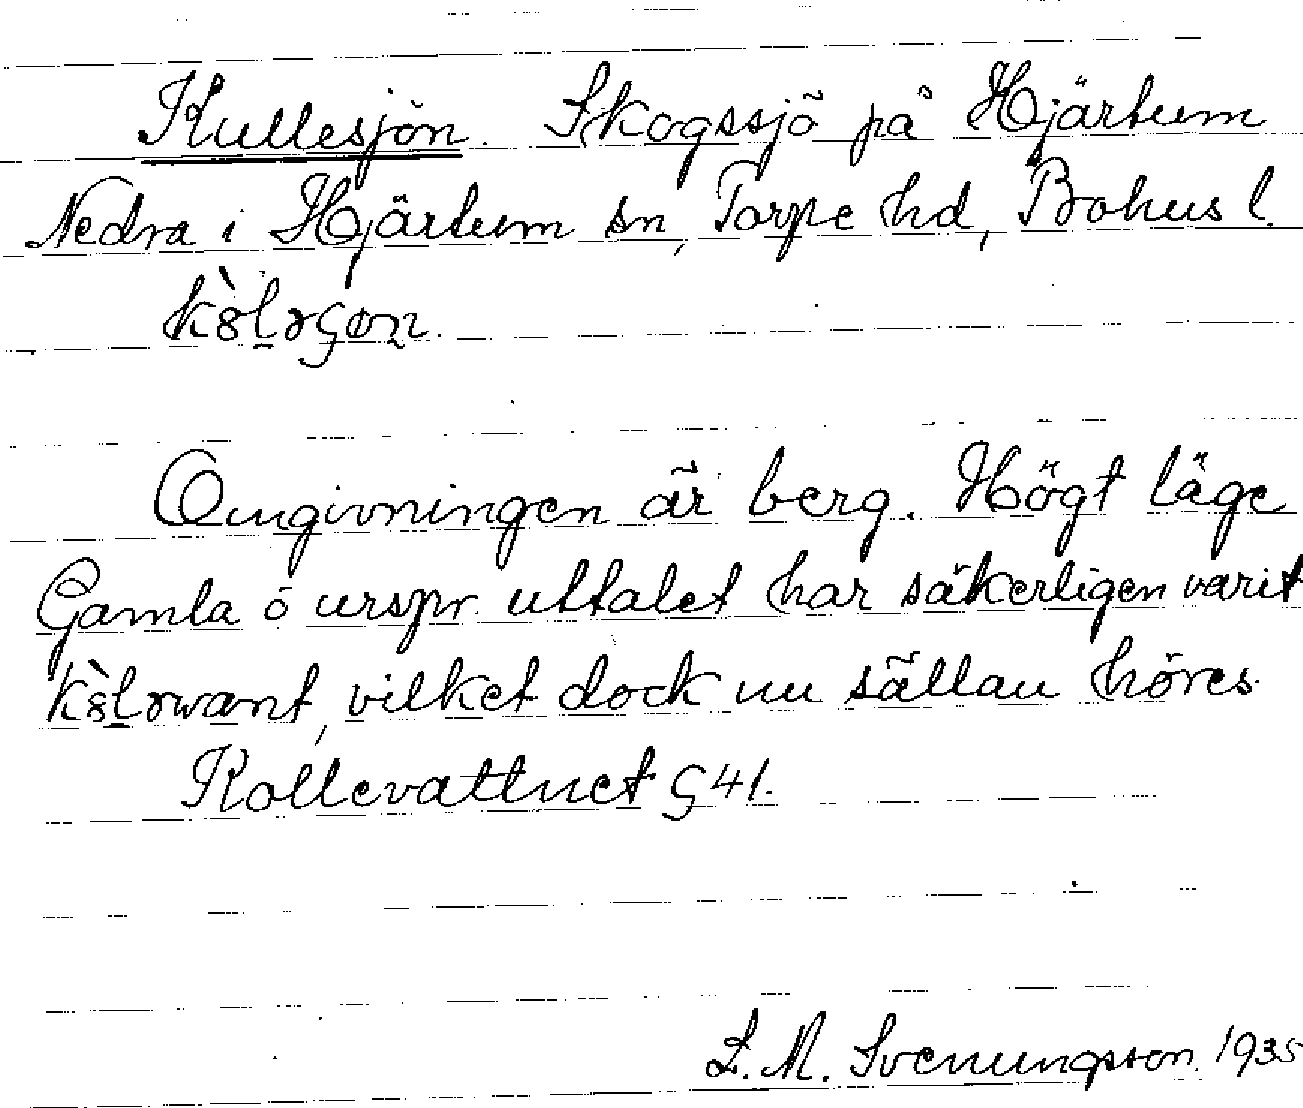 Kullesjön. Skogssjö på Hjärtum
Nedra i Hjärtum sn, Torpe hd, Bohus l.
Omgivningen är berg. Högt läge
Gamla o urspr. uttalet har säkerligen varit
vilket dock nu sällan höres.
Kollevattnet G 41.
L. M. Svenungsson 1935